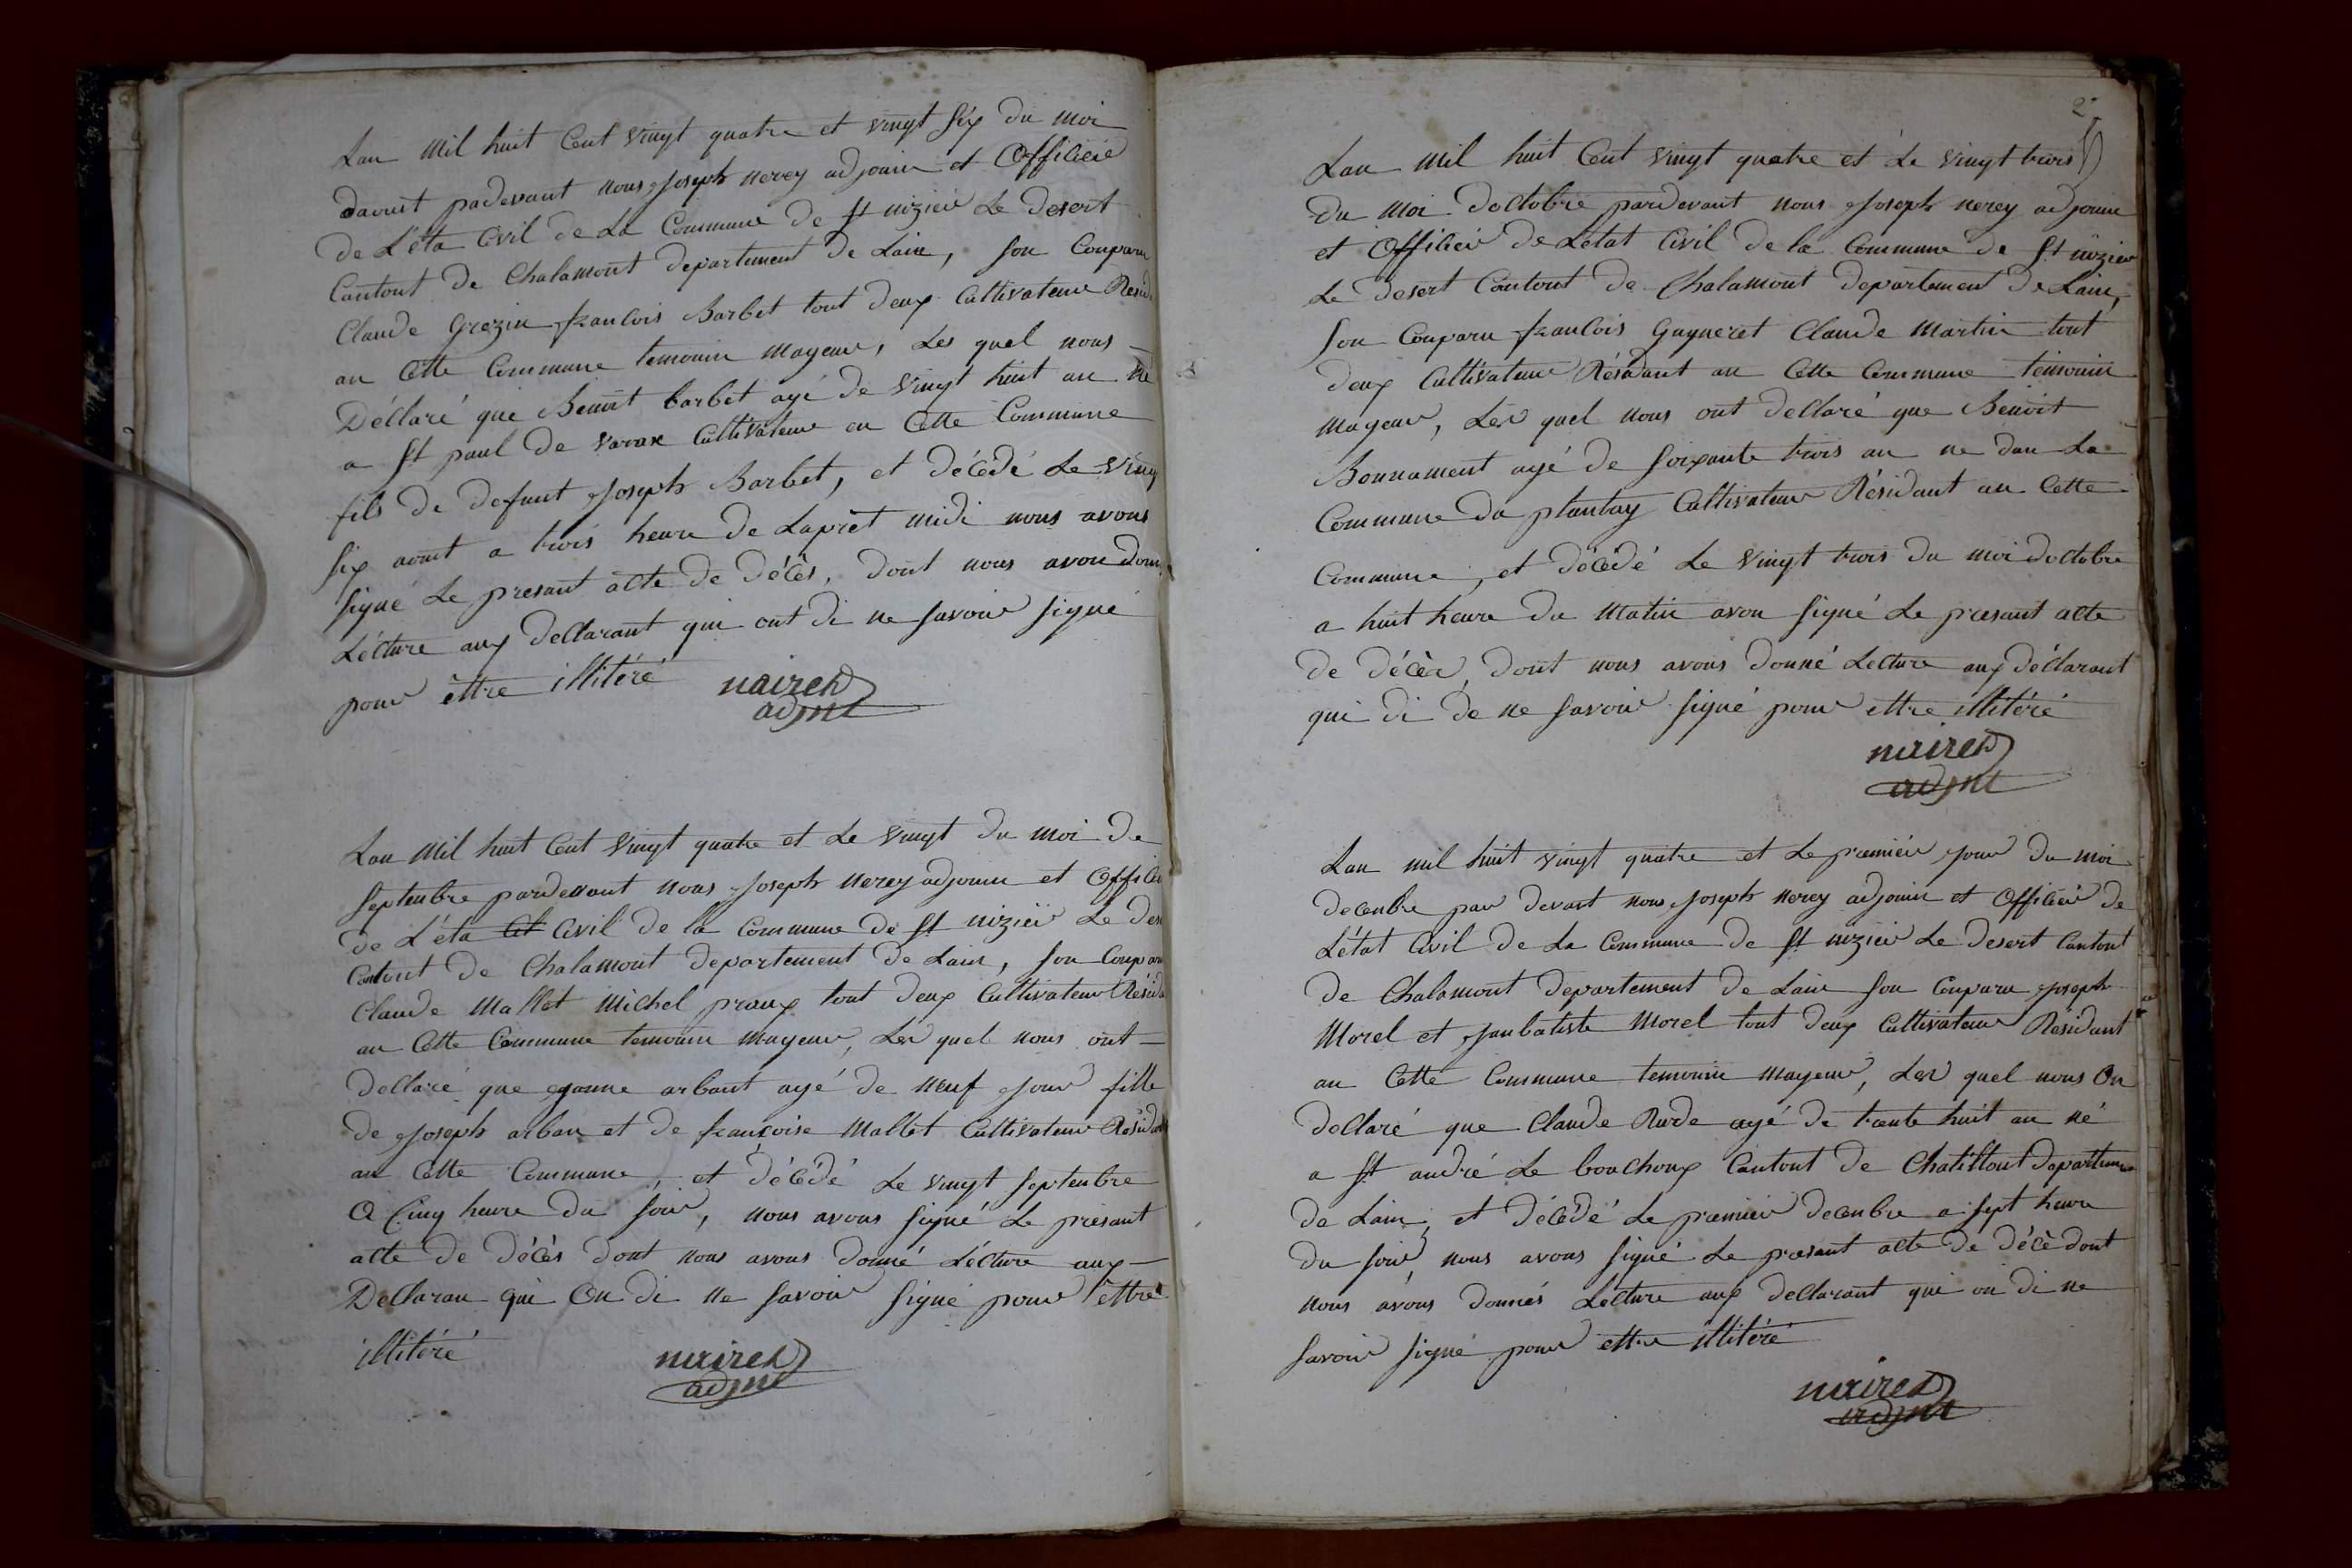 Lan Mil huit Cent vingt quatre et vingt Six du moi
daoust padevant nous Joseph nerey adjouin et Officié
de L'éta Civil de La Commune de St nizier Le Desert
Cantont de Chalamont departement de Lain, Son Comparu
Claude Grezin francois Barbet tout deux Cultivateur Resid
an Cette Commune temouin mageur, Les quel nous
Déclaré que Benoit barbet agé de vingt huit an né
a St paul de varax Cultivateur en Cette Commune
fils de defunt Joseph Barbet, et décédé Le ving
Six aout a trois heure de Laprèt midi nous avons
Signé Le presant acte de décès, dont nous avon donn
Lécture aux declarant qui ont di ne Savoir Signé
pour èttre illitéré
nairey
adjnt
Lan Mil huit Cent vingt quatre et Le vingt du moi de
Septenbre pardevant nous Joseph nerey adjouin et Officie
de L'éta Civil de la Commune de St nizier Le des
Cantont de Chalamont departement de Lain, Son Compar
Claude Mallet Michel praux tout deux Cultivateur Résida
an Cette Commune temouin mageur, Les quel nous ont
declaré que janne arbant agé de neuf jour fille
de Joseph arban et de françoise Mallet Cultivateur Résidan
an Cette Commune, et décédé Le vingt Septenbre
a Cinq heure du Soir, nous avons Signé Le présant
acte de décès dont nous avons donné Lécture aux
Declaran qui On di ne Savoir Signé pour èttre
illitéré
nairey
adjnt
2
Lan mil huit Cent vingt quatre et Le vingt trois
du moi doctobre pardevant nous Joseph nerey adjouin
et Officier de Létat Civil de la Commune de St nizier
Le Desert Cantont de Chalamont departement de Lain,
Son Comparu francois Gagneret Claude Martin tout
deux Cultivateur Résidant an Cette Commune temouin
mageur, Les quel nous ont declaré que Benoit
Bonnament agé de Soixante trois an ne dan La
Commune du plantay Cultivateur Résidant an Cette
Commune, et décédé Le vingt trois du moi doctobre
a huit heure du Matin avon Signé Le presant acte
de décès, dont nous avons donné Lecture aux déclarant
qui di de ne Savoir Signé pour ettre illitéré
nairey
adjnt
Lan mil huit vingt quatre et Le premiér jour du moi
decenbre par devant nous Joseph nerey adjouin et Officiér de
Létat Civil de La Commune de St nizier Le Desert Cantont
de Chalamont departement de Lain Son Comparu Joseph
Morel et Janbatiste Morel tout deux Cultivateur Résidant
an Cette Commune temouin mageur, Les quel nous On
declaré que Claude Rude agé de trente huit an né
a St andré Le bouchoux Cantont de Chatillont departemen
de Lain, et décédé Le premier decenbre a Sept heure
du Soir, nous avons Signé Le presant acte de décè dont
nous avons donnés Lécture aux declarant qui on di ne
Savoir Signé pour ettre illitéré
nairey
adjnt